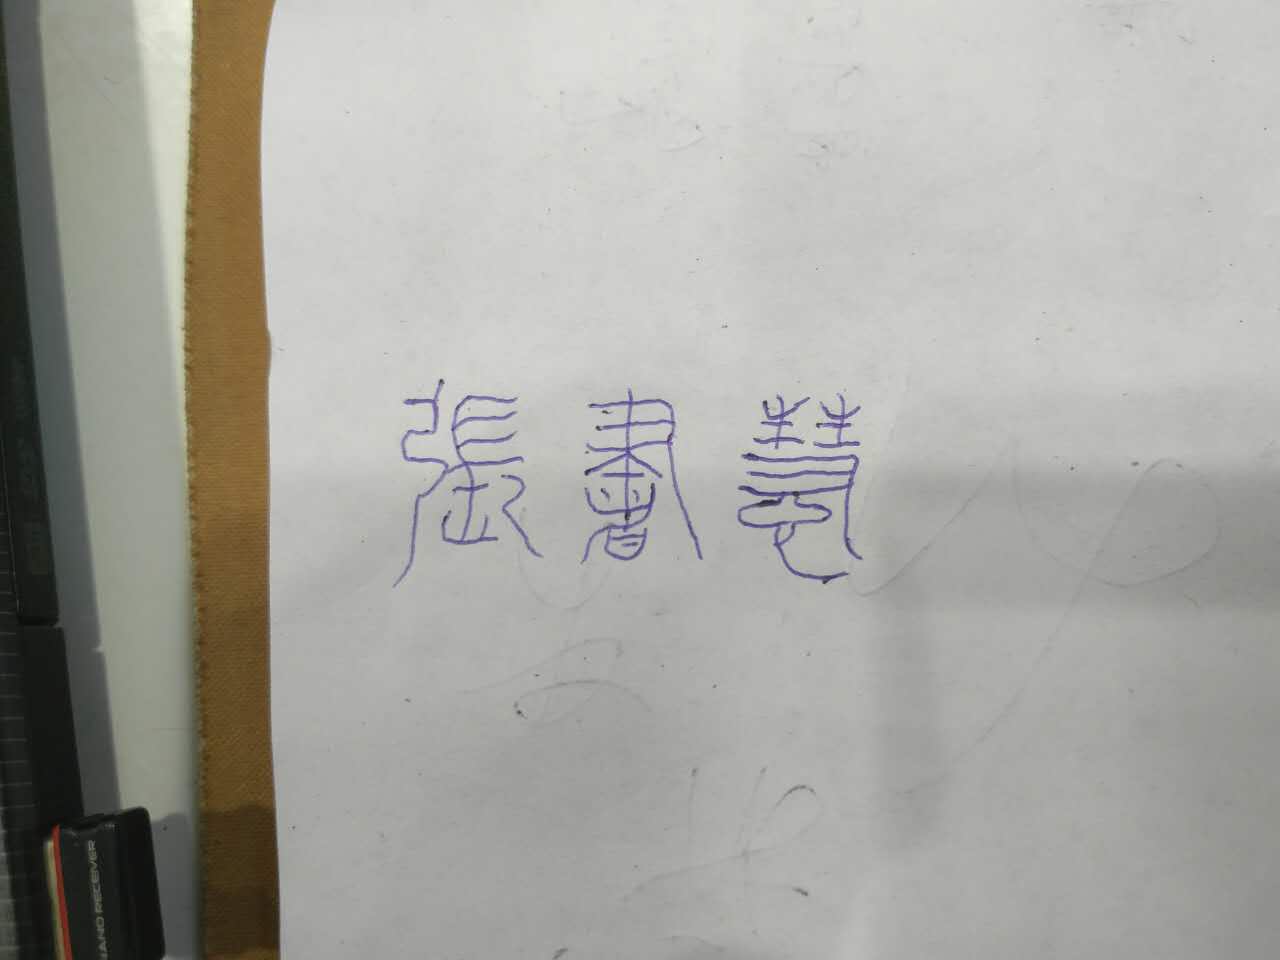 張書慧
AND RECEIVER